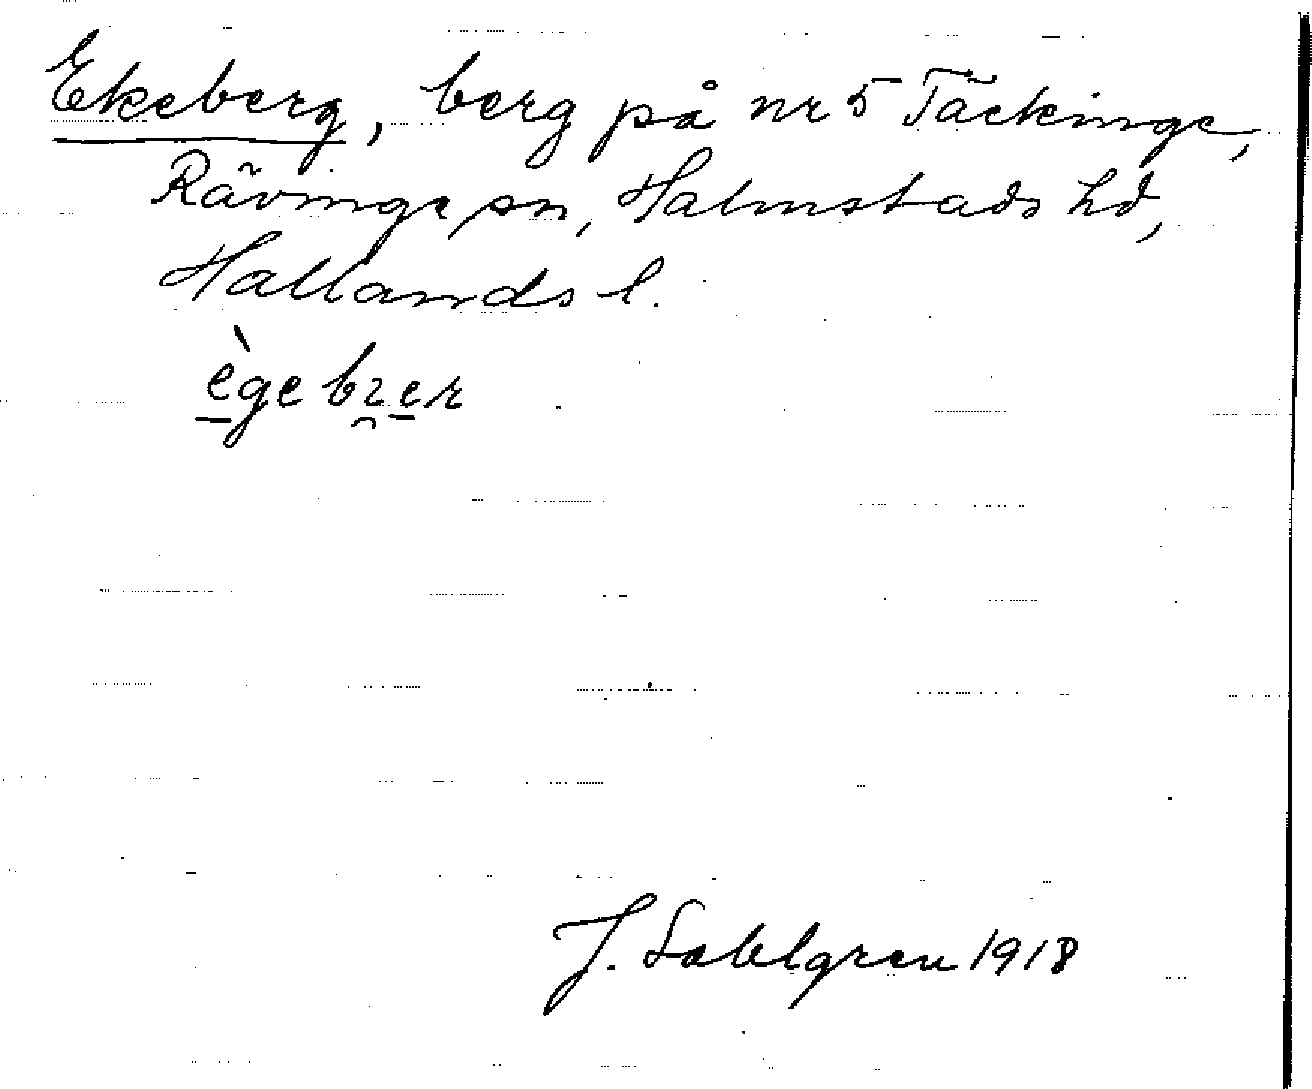 Ekeberg, berg på nr 5 Täckinge,
Rävinge sn, Halmstads hd,
Hallands l.
ègebrer
J. Sahlgren 1918